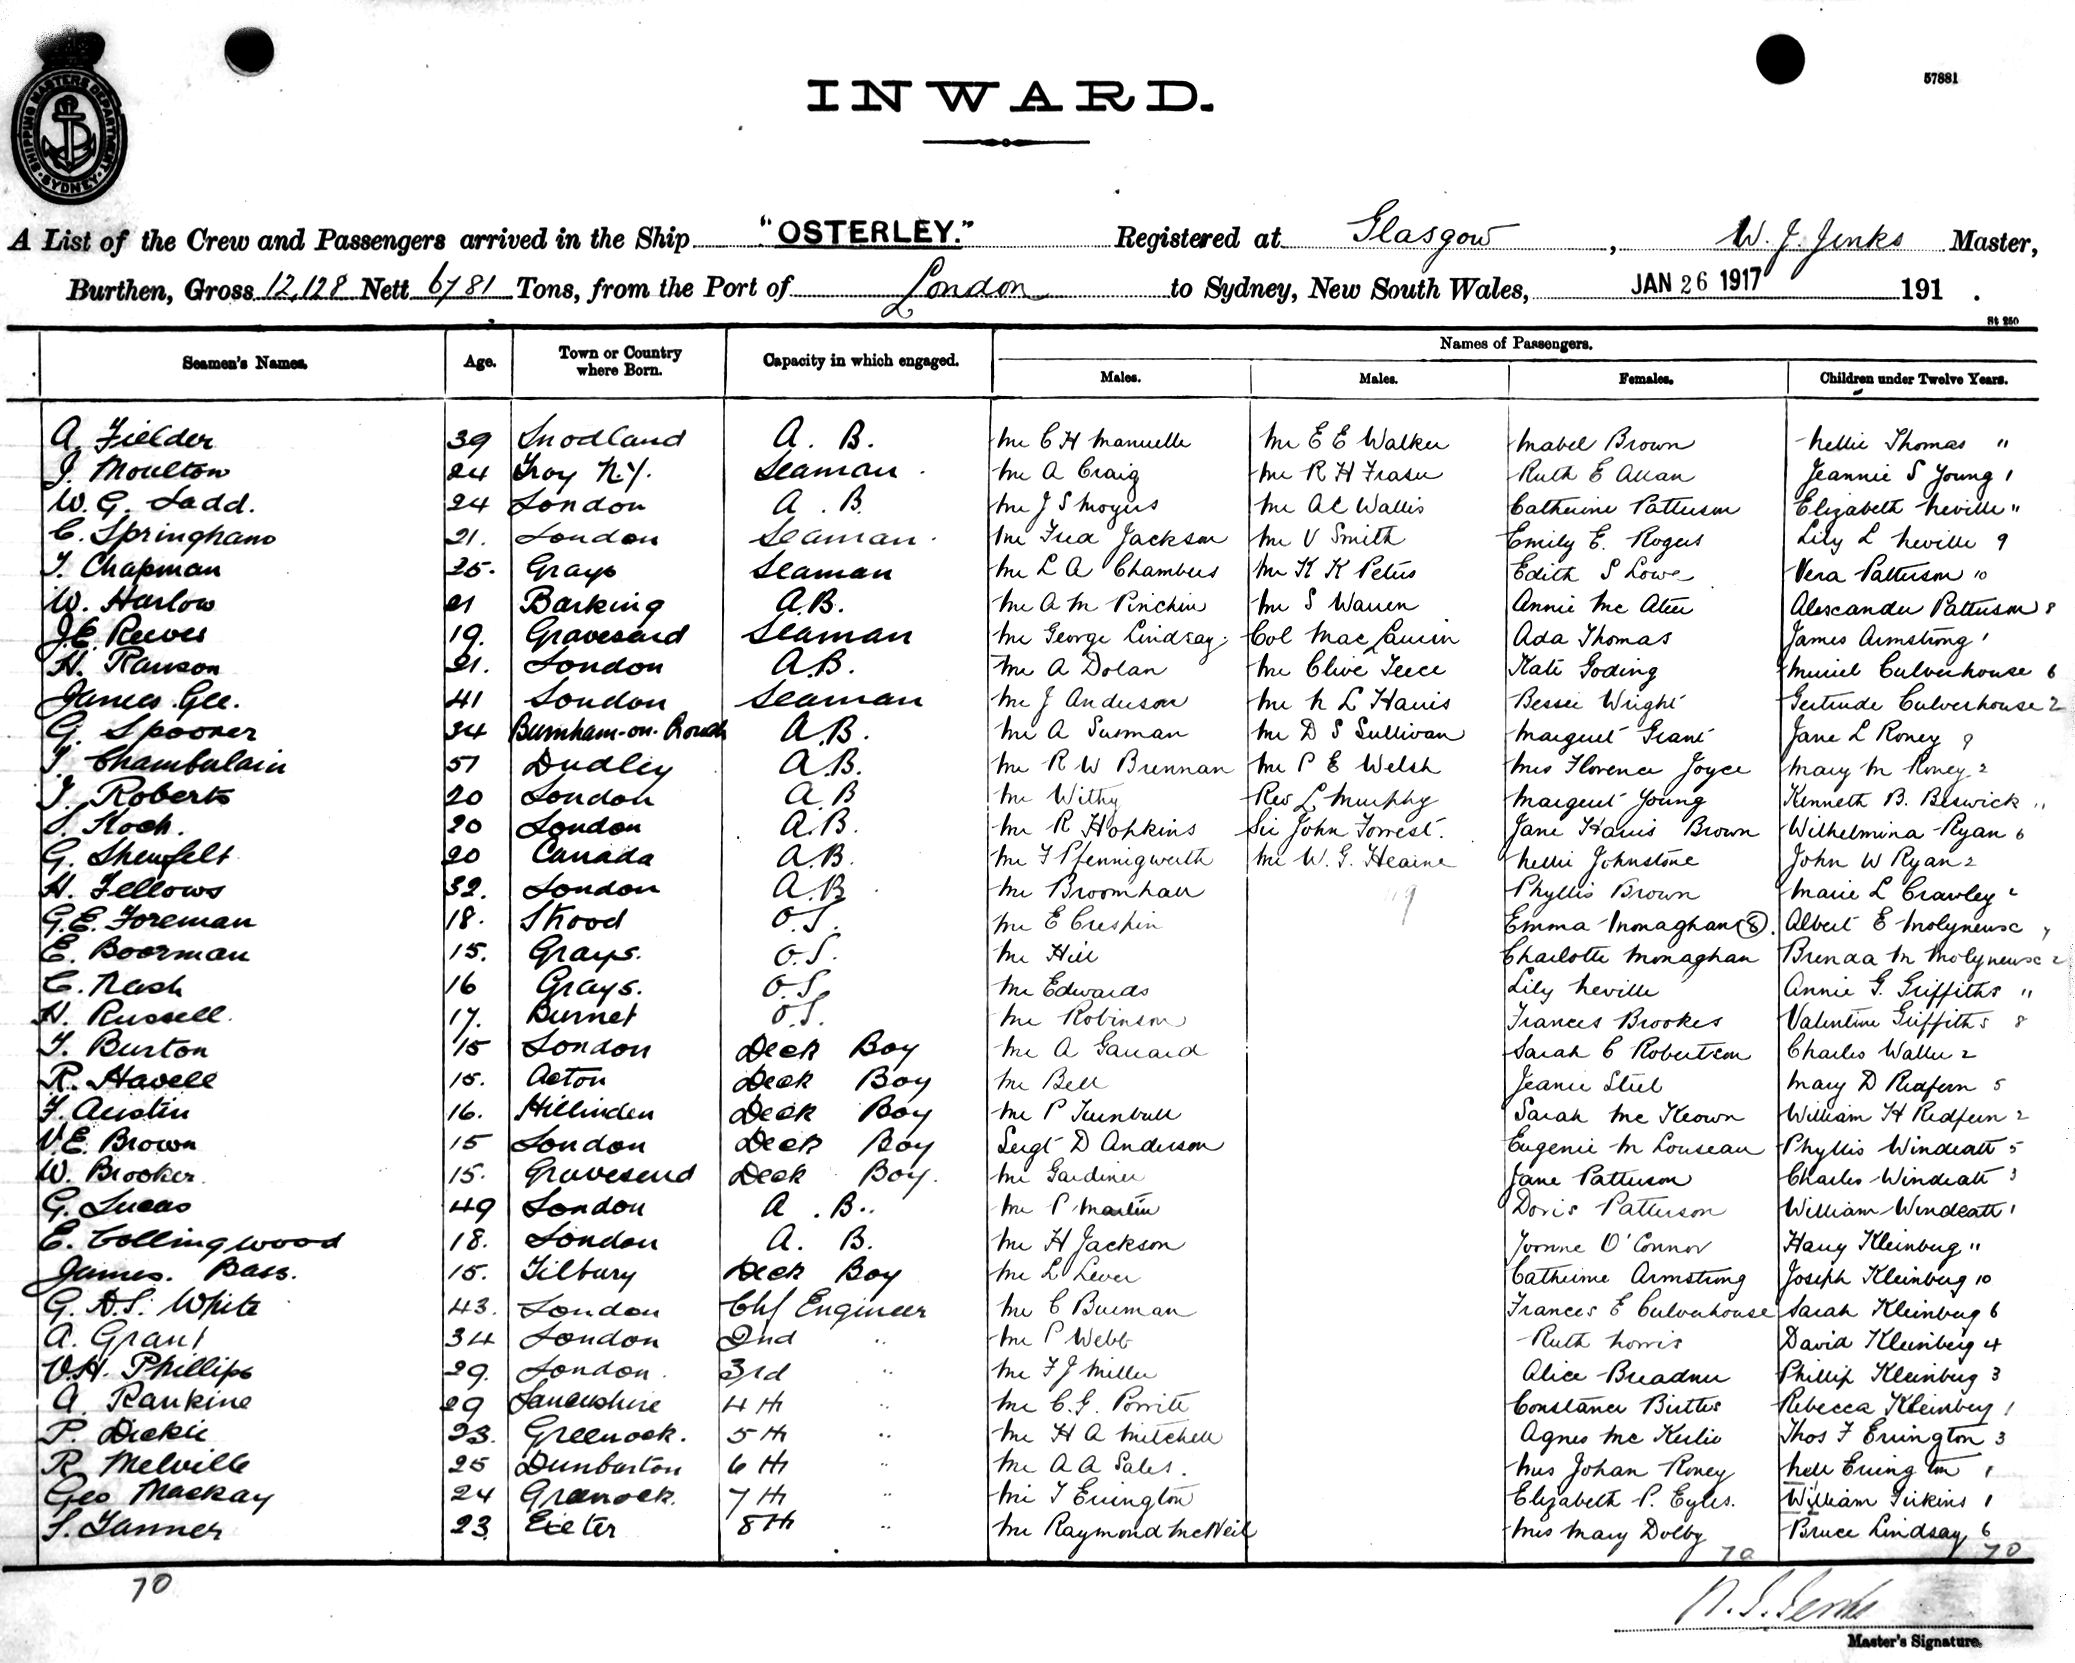 SHIPPING MASTERS DEPARTMENT SYDNEY
57881
INWARD.
A List of the Crew and Passengers arrived in the Ship "OSTERLEY." Registered at Glasgow, W. J. Jenks Master,
Burthen, Gross 12,128 Nett 6781 Tons, from the Port of London to Sydney, New South Wales, JAN 26 1917 191 .
St 250
Seamen's Names. Age. Town or Country where Born. Capacity in which engaged. Names of Passengers.
Males. Males. Females. Children under Twelve Years.
A. Fielder 39 Snodland A. B. Mr C H Manuelle Mr E E Walker Mabel Brown Nellie Thomas "
J. Moulton 24 Troy N.Y. Seaman Mr A Craig Mr R H Fraser Ruth E Allan Jeannie S Young 1
W. G. Ladd. 24 London A. B. Mr J S Moyers Mr A C Wallis Catherine Patterson Elizabeth Neville "
C. Springham 21. London Seaman Mr Fred Jackson Mr V Smith Emily E. Rogers Lily L Neville 9
T. Chapman 25. Grays Seaman Mr L A Chambers Mr K K Peters Edith S Lowe Vera Patterson 10
W. Harlow 21 Barking A.B. Mr A M Pinchin Mr S Warren Annie Mc Ateer Alexander Patterson 8
J.E. Reeves 19. Gravesend Seaman Mr George Lindsay Col Mac Laurin Ada Thomas James Armstrong 1
H. Ranson 21. London A.B. Mr A Dolan Mr Clive Teece Kate Goding Muriel Culverhouse 6
James Gee. 41 London Seaman Mr J Anderson Mr N L Harris Bessie Wright Gertrude Culverhouse 2
G. Spooner 34 Burnham-on-Crouch A.B. Mr A Susman Mr D S Sullivan Margaret Grant Jane L Roney 9
T. Chambalain 51 Dudley A.B. Mr R W Brennan Mr P E Welsh Mrs Florence Joyce Mary M Roney 2
T. Roberts 20 London A.B Mr Withy Rev L Murphy Margaret Young Kenneth B. Beswick "
S. Koch. 20 London A.B. Mr R Hopkins Sir John Forrest. Jane Harris Brown Wilhelmina Ryan 6
G. Shewfelt 20 Canada A.B. Mr F Pfennigwerth Mr W. G. Hearne Nellie Johnstone John W Ryan 2
H. Fellows 32. London A.B Mr Broomhall 49 Phyllis Brown Marie L Crawley 2
G.E. Foreman 18. Strood O.S. Mr E Crespin Emma Monaghan (8). Albert E Molyneux
E. Boorman 15. Grays. O.S. Mr Hill Charlotte Monaghan Brenda M Molyneux 2
C. Nash 16 Grays. O.S. Mr Edwards Lily Neville Annie G. Griffiths "
H. Russell. 17. Burnet O.S. Mr Robinson Frances Brookes Valentine Griffiths 8
T. Burton 15 London Deck Boy Mr A Garrard Sarah C Robertson Charles Waller 2
R. Havell 15. Acton Deck Boy Mr Bell Jeanie Steel Mary D Redfern 5
F. Austin 16. Hillinden Deck Boy Mr P Turnbull Sarah Mc Keown William H Redfern 2
V.E. Brown 15 London Deck Boy Sergt D Anderson Eugenie M Louseau Phyllis Windeatt 5
W. Brooker. 15. Gravesend Deck Boy. Mr Gardiner Jane Patterson Charles Windeatt 3
G. Lucas 49 London A. B. Mr P Martin Doris Patterson William Windeatt 1
E. Collingwood 18. London A. B. Mr H Jackson Yvonne O'Connor Harry Kleinberg "
James. Bass. 15. Tilbury Deck Boy Mr L Lever Catherine Armstrong Joseph Kleinberg 10
G. A.S. White 43. London Chf Engineer Mr C Burman Frances E Culverhouse Sarah Kleinberg 6
A. Grant 34 London 2nd " Mr P Webb Ruth Norris David Kleinberg 4
V.H. Phillips 29. London 3rd " Mr F J Miller Alice Breadner Phillip Kleinberg 3
A. Rankine 29 Lancashire 4th " Mr C. G. Porrite Constance Birtles Rebecca Kleinberg 1
P. Dickie 23. Greenock. 5th " Mr H A Mitchell Agnes Mc Kerlie Thos F Errington 3
R Melville 25 Dunbarton 6th " Mr A A Sales. Mrs Johan Roney Nell Errington 1
Geo Mackay 24 Greenock. 7th " Mr T Errington Elizabeth P. Eyles. William Firkins 1
S. Tanner 23 Exeter 8th " Mr Raymond McNeil Mrs Mary Dolby Bruce Lindsay 6
70 70 70
W. J. Jenks
Master's Signature.